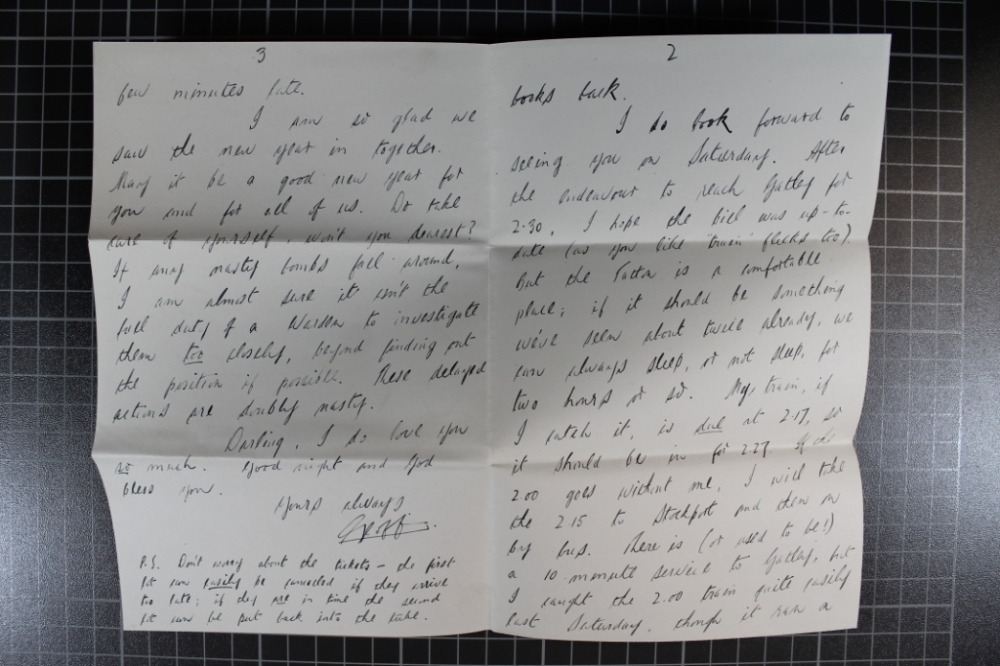 2
books back.
I do look forward to
seeing you on Saturday. After
the endeavour to reach Gatley for
2.30, I hope the biel was up-to-
date (as you like "train" flicks too).
But the Tatton is a comfortable
place; if it should be something
we've seen about twice already, we
can always sleep, or not sleep, for
two hours or so. My train, if
I catch it, is due at 2.17, so
it should be in for 2.27. If the
2.00 goes without me, I will take
the 2.15 to Stockport and then on
by bus. There is (or used to be!)
a 10-minute service to Gatley, but
I caught the 2.00 train quite easily
last Saturday, though it ran a
3
few minutes late.
I am so glad we
saw the new year in together.
May it be a good new year for
you and for all of us. Do take
care of yourself, won't you dearest?
If any nasty bombs fall around,
I am almost sure it isn't the
full duty of a Warden to investigate
them too closely, beyond finding out
the position if possible. These delayed
actions are doubly nasty.
Darling, I do love you
so much. Good night and God
bless you.
Yours always
Geoff.
P.S. Don't worry about the tickets – the first
lot can easily be cancelled if they arrive
too late; if they are in time the second
lot can be put back into the sale.